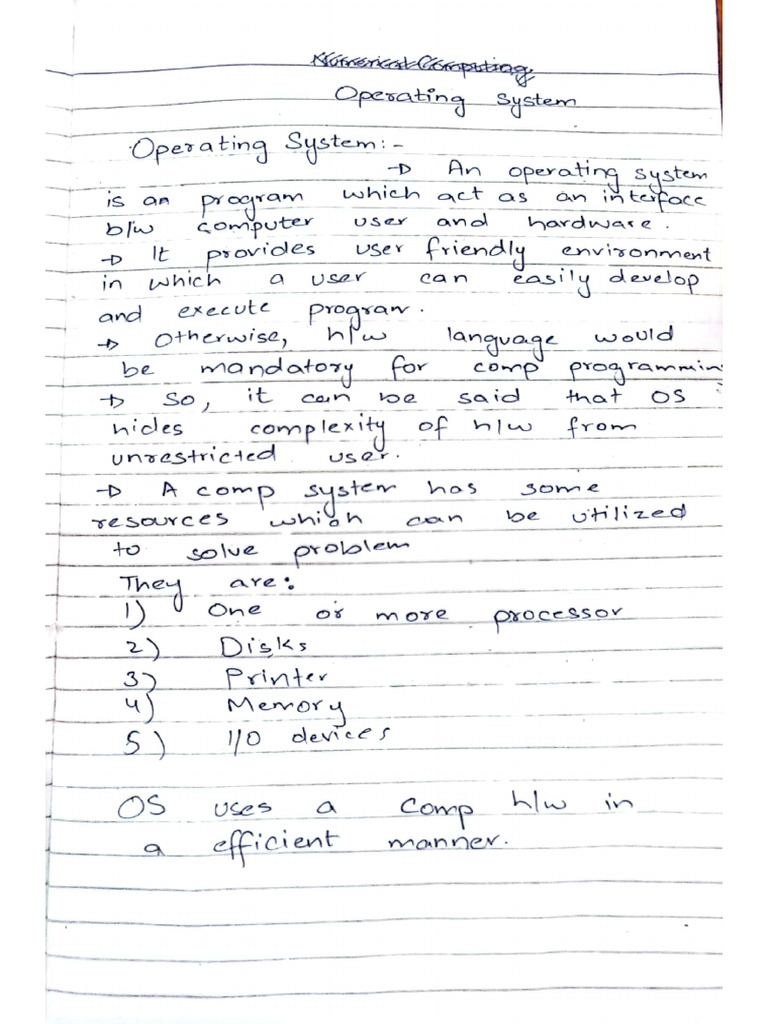 Numerical Computing
Operating System
Operating System:-
→ An operating system
is an program which act as an interface
b/w computer user and hardware.
→ It provides user friendly environment
in which a user can easily develop
and execute program.
→ Otherwise, h/w language would
be mandatory for comp programmin
→ So, it can be said that OS
hides complexity of h/w from
unrestricted user.
→ A comp system has some
resources which can be utilized
to solve problem
They are:
1) One or more processor
2) Disks
3) Printer
4) Memory
5) I/O devices
OS uses a comp h/w in
a efficient manner.